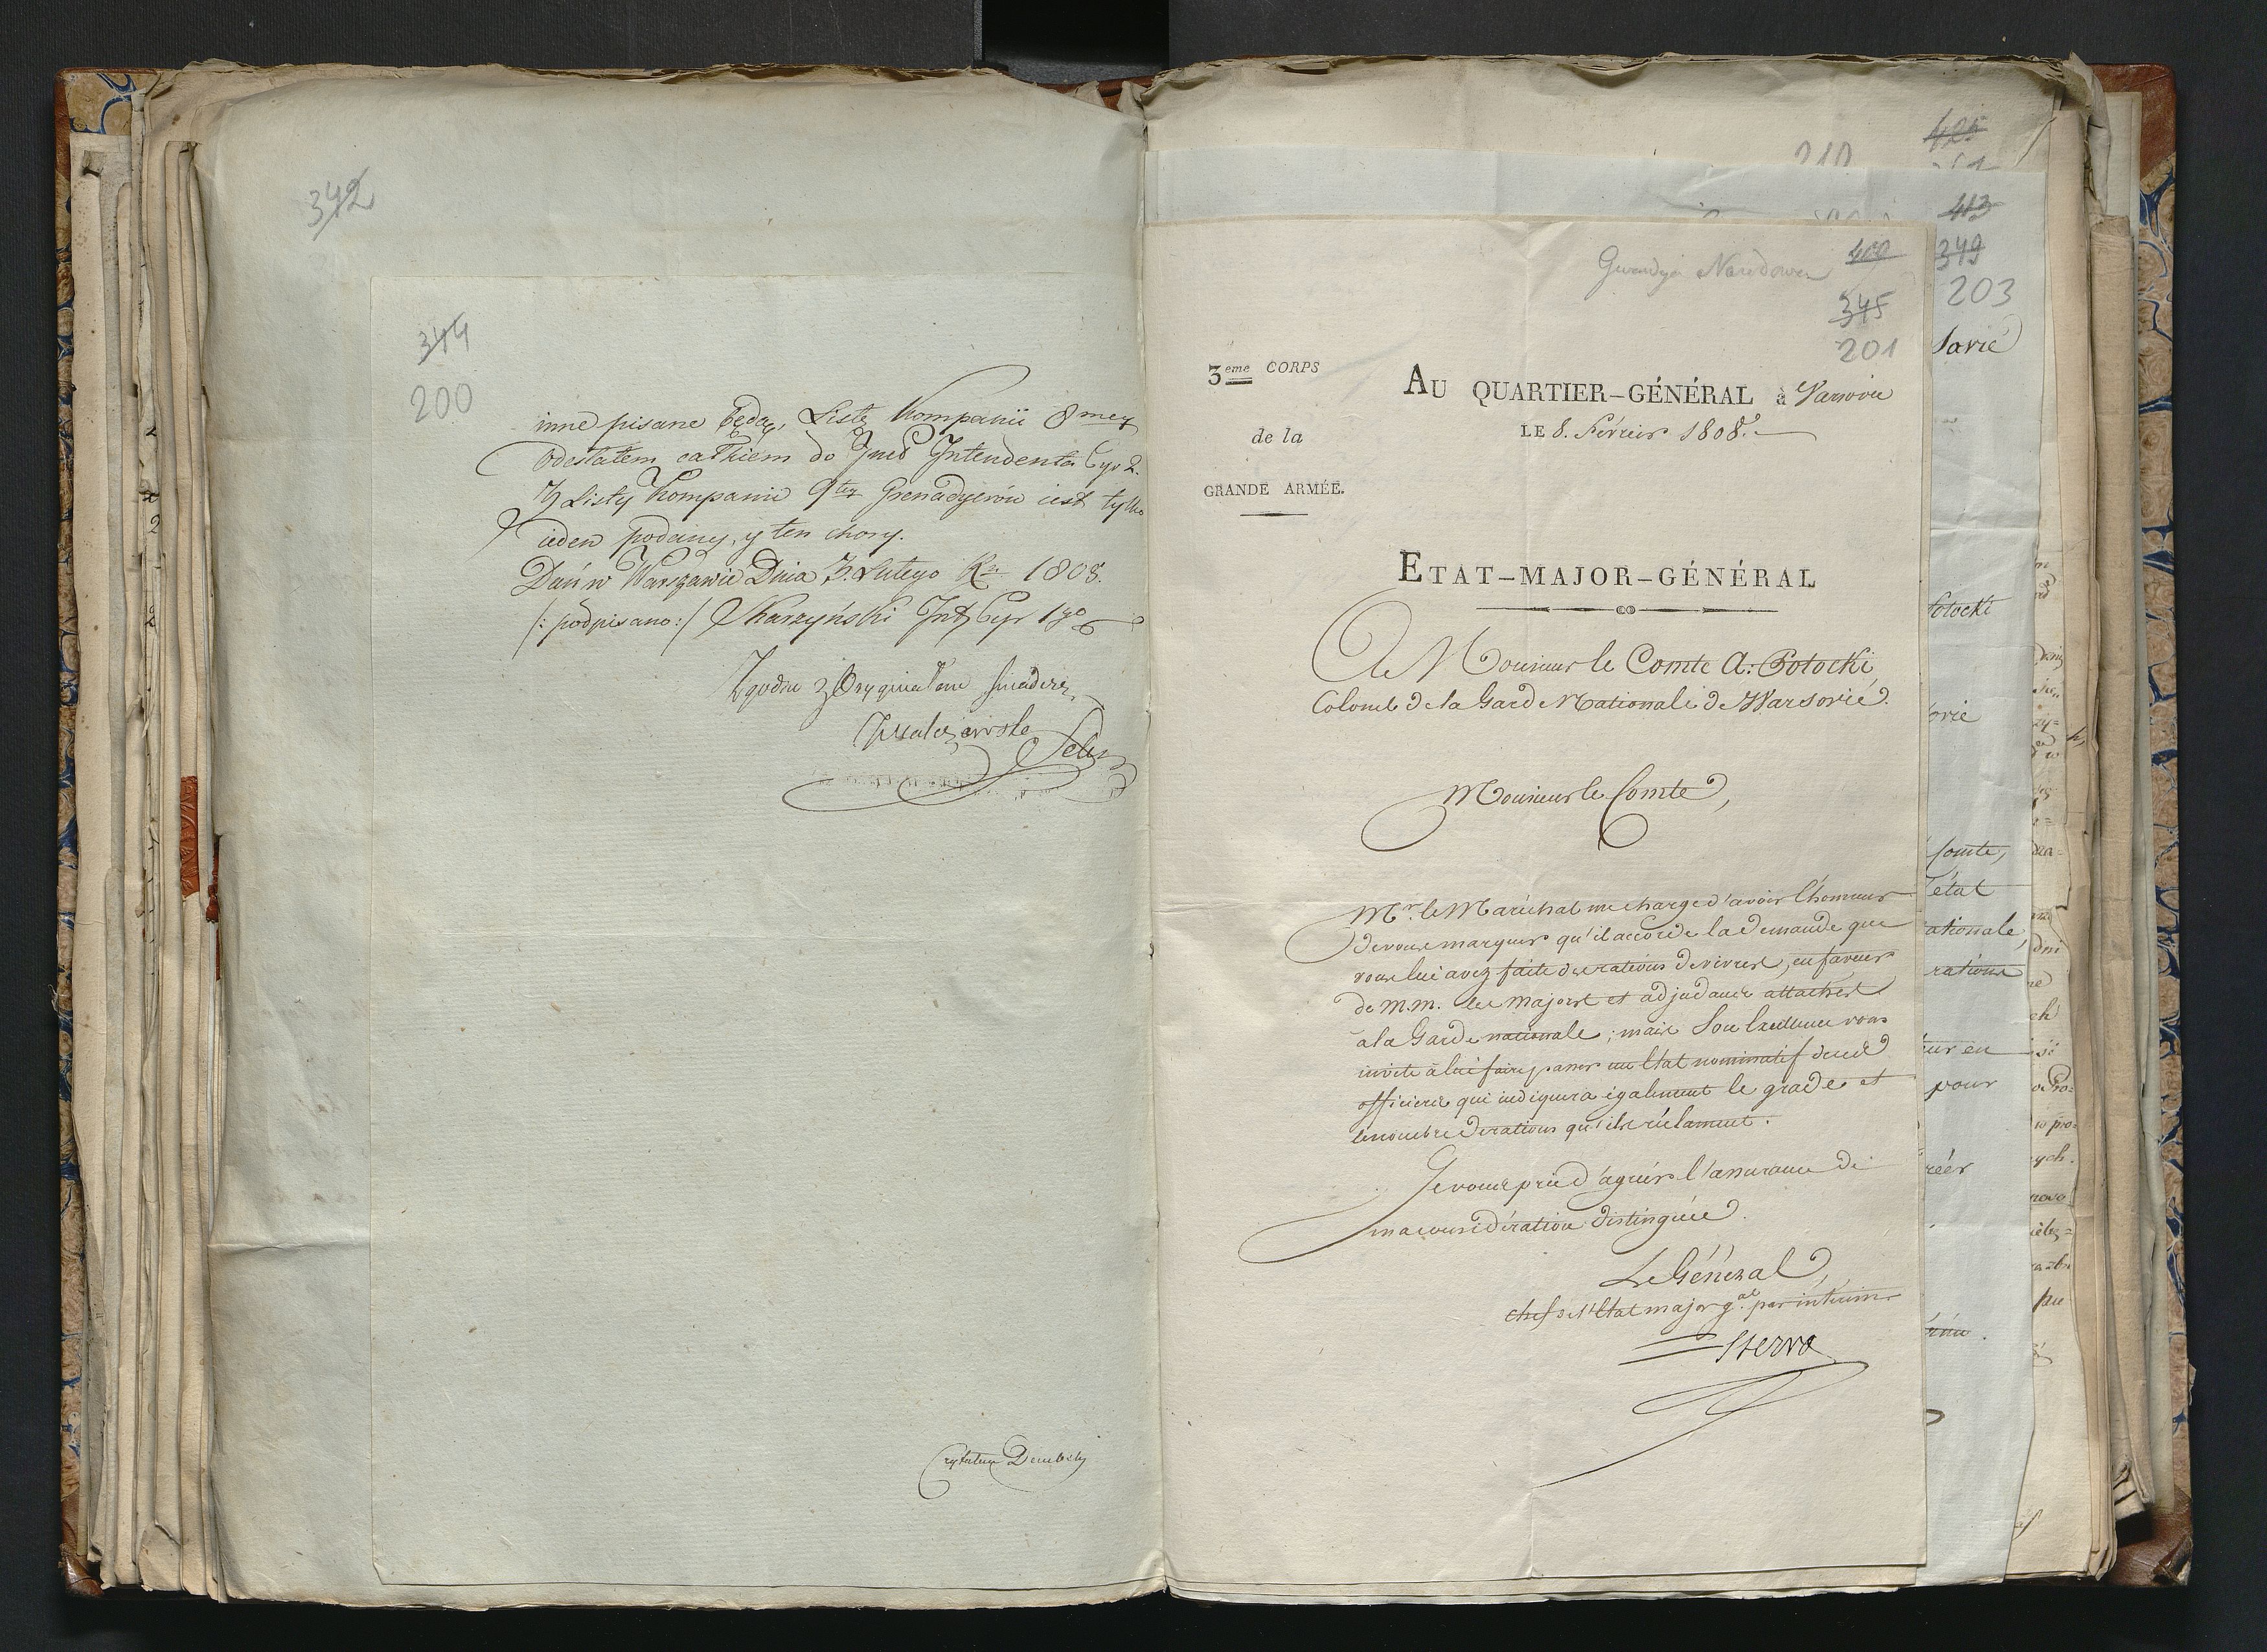 342
344
200
inne pisane będą, Listę Kompanii 8mey
Odesłałem całkiem do Intendenta Cyr 2.
Z Listy Kompanii 9tey Grenadyerów iest tylko
ieden podany, y ten chory.
Dań w Warszawie Dnia 3. Lutego Ru 1808.
/: podpisano :/ Skarzyński Int Cyr 1go
Zgodno z Oryginałem świadczę
Czytałem Dembicki
425
413
349
203
Gwardya Narodowa
409
345
201
3eme CORPS
de la
GRANDE ARMÉE.
AU QUARTIER-GÉNÉRAL à Varsovie
LE 8. Février 1808.
ETAT-MAJOR-GÉNÉRAL
A Monsieur le Comte A. Potocki,
Colonel de la Garde Nationale de Warsovie.
Monsieur le Comte,
Mr. le Maréchal me charge d'avoir l'honneur
de vous marquer qu'il accorde la demande que
vous lui avez faite des rations de vivres, en faveur
de M.M. les majors et adjudants attachés
à la Garde nationale ; mais Son Excellence vous
invite à lui faire passer un Etat nominatif de ces
officiers qui indiquera également le grade et
le nombre de rations qu'ils réclament.
Je vous prie d'agréer l'assurance de
ma considération distinguée.
Le Général,
chef de l'Etat major gal. par interim
sovie
Potocki
ovie
Comte,
l'état
nationale,
rations
eur en
pour
réer